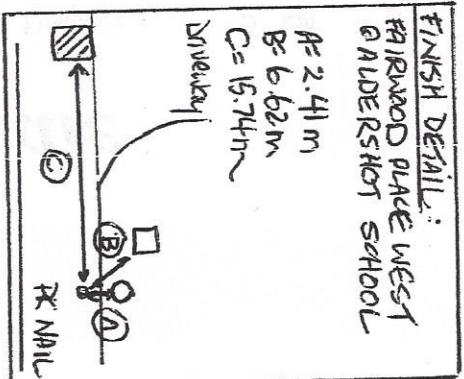 FINISH DETAIL:
FAIRWOOD PLACE WEST
@ ALDERSHOT SCHOOL
A= 2.41 m
B= 6.62 m
C= 15.74 m
Driveway
B
A
C
PK NAIL